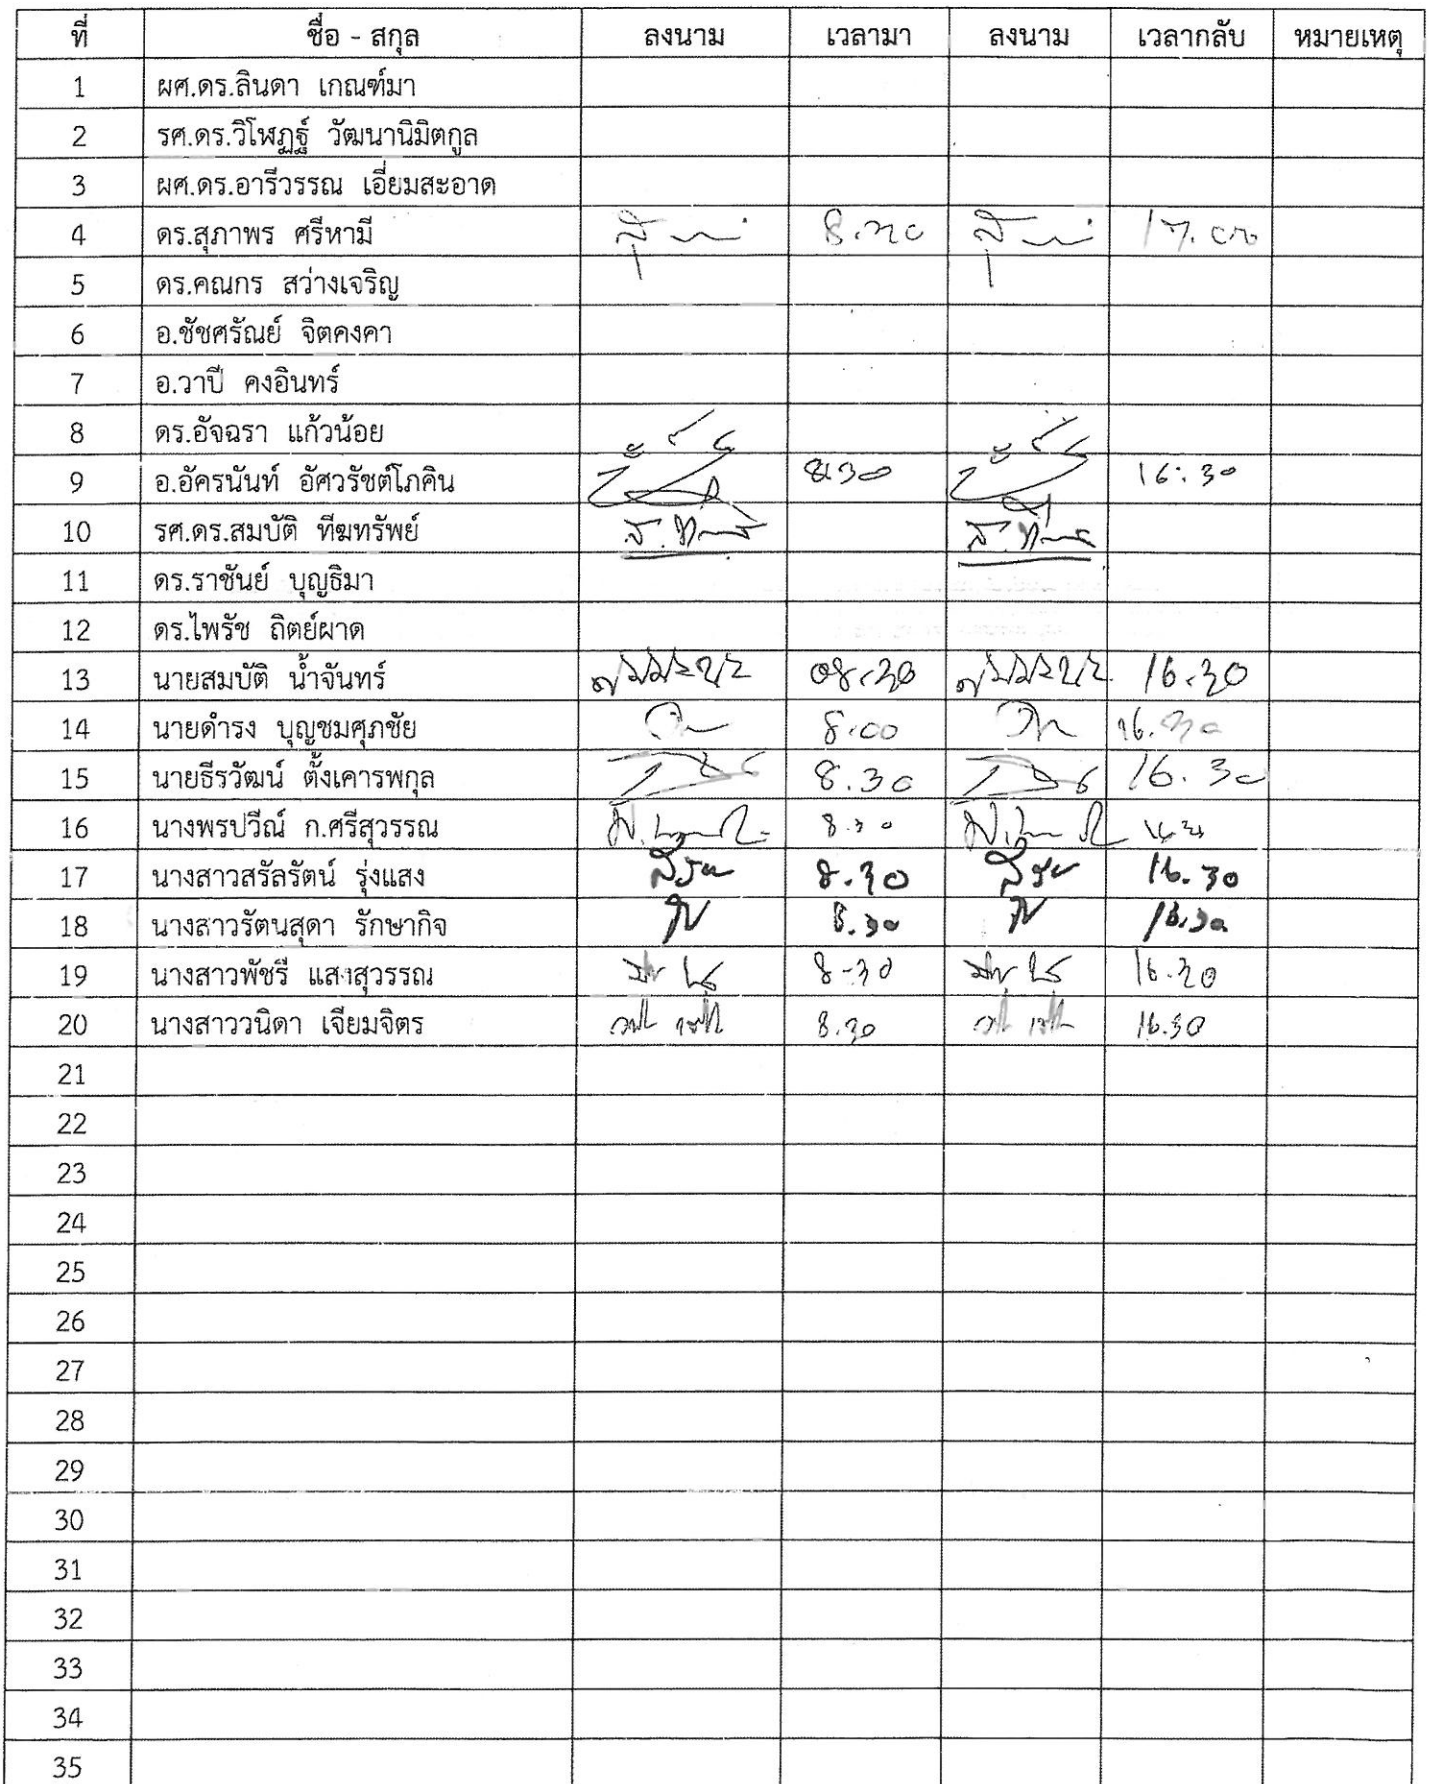 ที่ ชื่อ - สกุล ลงนาม เวลามา ลงนาม เวลากลับ หมายเหตุ
1 ผศ.ดร.ลินดา เกณฑ์มา
2 รศ.ดร.วิโฬฏฐ์ วัฒนานิมิตกูล
3 ผศ.ดร.อารีวรรณ เอี่ยมสะอาด
4 ดร.สุภาพร ศรีหามี
5 ดร.คณกร สว่างเจริญ
6 อ.ชัชศรัณย์ จิตคงคา
7 อ.วาปี คงอินทร์
8 ดร.อัจฉรา แก้วน้อย
9 อ.อัครนันท์ อัศวรัชต์โภคิน 8.30 16.30
10 รศ.ดร.สมบัติ ทีฆทรัพย์
11 ดร.ราชันย์ บุญธิมา
12 ดร.ไพรัช ถิตย์ผาด
13 นายสมบัติ น้ำจันทร์ 08.30 16.30
14 นายดำรง บุญชมศุภชัย 8.00 16.30
15 นายธีรวัฒน์ ตั้งเคารพกุล 8.30 16.30
16 นางพรปวีณ์ ก.ศรีสุวรรณ 8.30
17 นางสาวสรัลรัตน์ รุ่งแสง 8.30 16.30
18 นางสาวรัตนสุดา รักษากิจ 8.30 16.30
19 นางสาวพัชรี แสงสุวรรณ 8-30 16.30
20 นางสาววนิดา เจียมจิตร 8.30 16.30
21
22
23
24
25
26
27
28
29
30
31
32
33
34
35